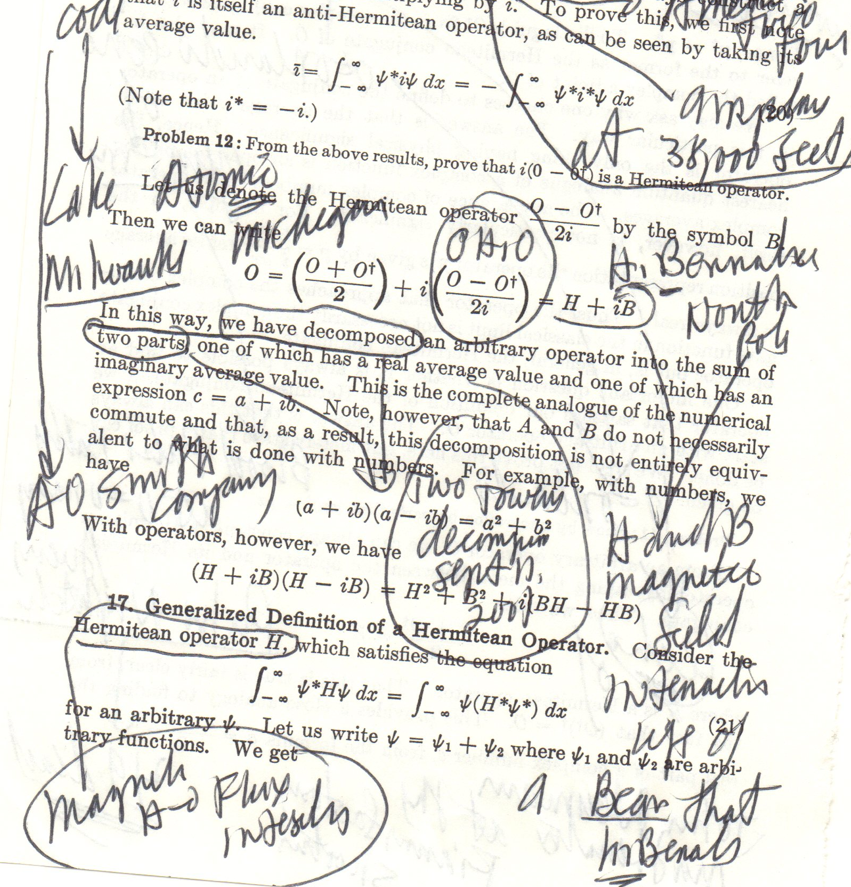 that i is itself an anti-Hermitean operator, as can be seen by taking its
plying by i. To prove this, we first note
average value.
i = ∫_{-∞}^{∞} ψ*iψ dx = − ∫_{-∞}^{∞} ψ*i*ψ dx (20)
(Note that i* = −i.)
at 35,000 feet
Problem 12: From the above results, prove that i(0 − 0†) is a Hermitean operator.
Lake Atomic
Let us denote the Hermitean operator (O − O†)/2i by the symbol B.
Then we can write
Michegan
OHIO
O = ((O + O†)/2) + i((O − O†)/2i) = H + iB
North
In this way, we have decomposed an arbitrary operator into the sum of
two parts, one of which has a real average value and one of which has an
imaginary average value. This is the complete analogue of the numerical
expression c = a + ib. Note, however, that A and B do not necessarily
commute and that, as a result, this decomposition is not entirely equiv-
alent to what is done with numbers. For example, with numbers, we
have
AO Smith
Company
Two Towers
(a + ib)(a − ib) = a² + b²
H and B
With operators, however, we have
magnetic
sept 11,
2001
(H + iB)(H − iB) = H² + B² + i(BH − HB)
17. Generalized Definition of a Hermitean Operator. Consider the
Hermitean operator H, which satisfies the equation
∫_{-∞}^{∞} ψ*Hψ dx = ∫_{-∞}^{∞} ψ(H*ψ*) dx (21)
for an arbitrary ψ. Let us write ψ = ψ₁ + ψ₂ where ψ₁ and ψ₂ are arbi-
trary functions. We get
Flux
a Bear that